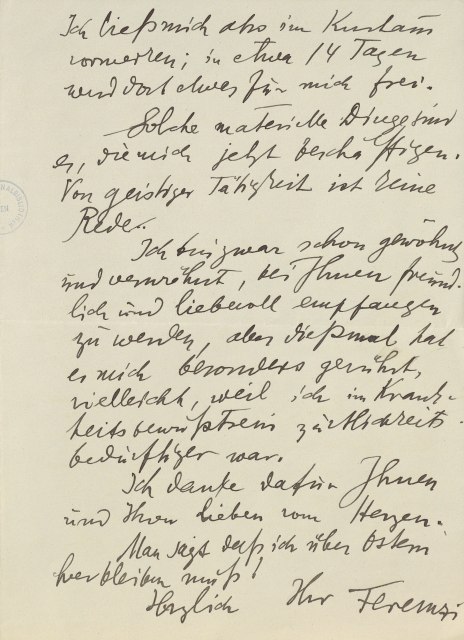 Ich ließ mich also im Kurhaus
vormerken; in etwa 14 Tagen
wird dort etwas für mich frei.
Solche materielle Dinge sind
es, die mich jetzt beschäftigen.
Von geistiger Tätigkeit ist keine
Rede.
Ich bin zwar schon gewöhnt
und verwöhnt, bei Ihnen freund-
lich und liebevoll empfangen
zu werden, aber dießmal hat
es mich besonders gerührt,
vielleicht, weil ich im Krank-
heitsbewußtsein zärtlichkeits-
bedürftiger war.
Ich danke dafür Ihnen
und Ihren Lieben vom Herzen.
Man sagt daß ich über Ostern
hierbleiben muß!
Herzlich Ihr Ferenczi